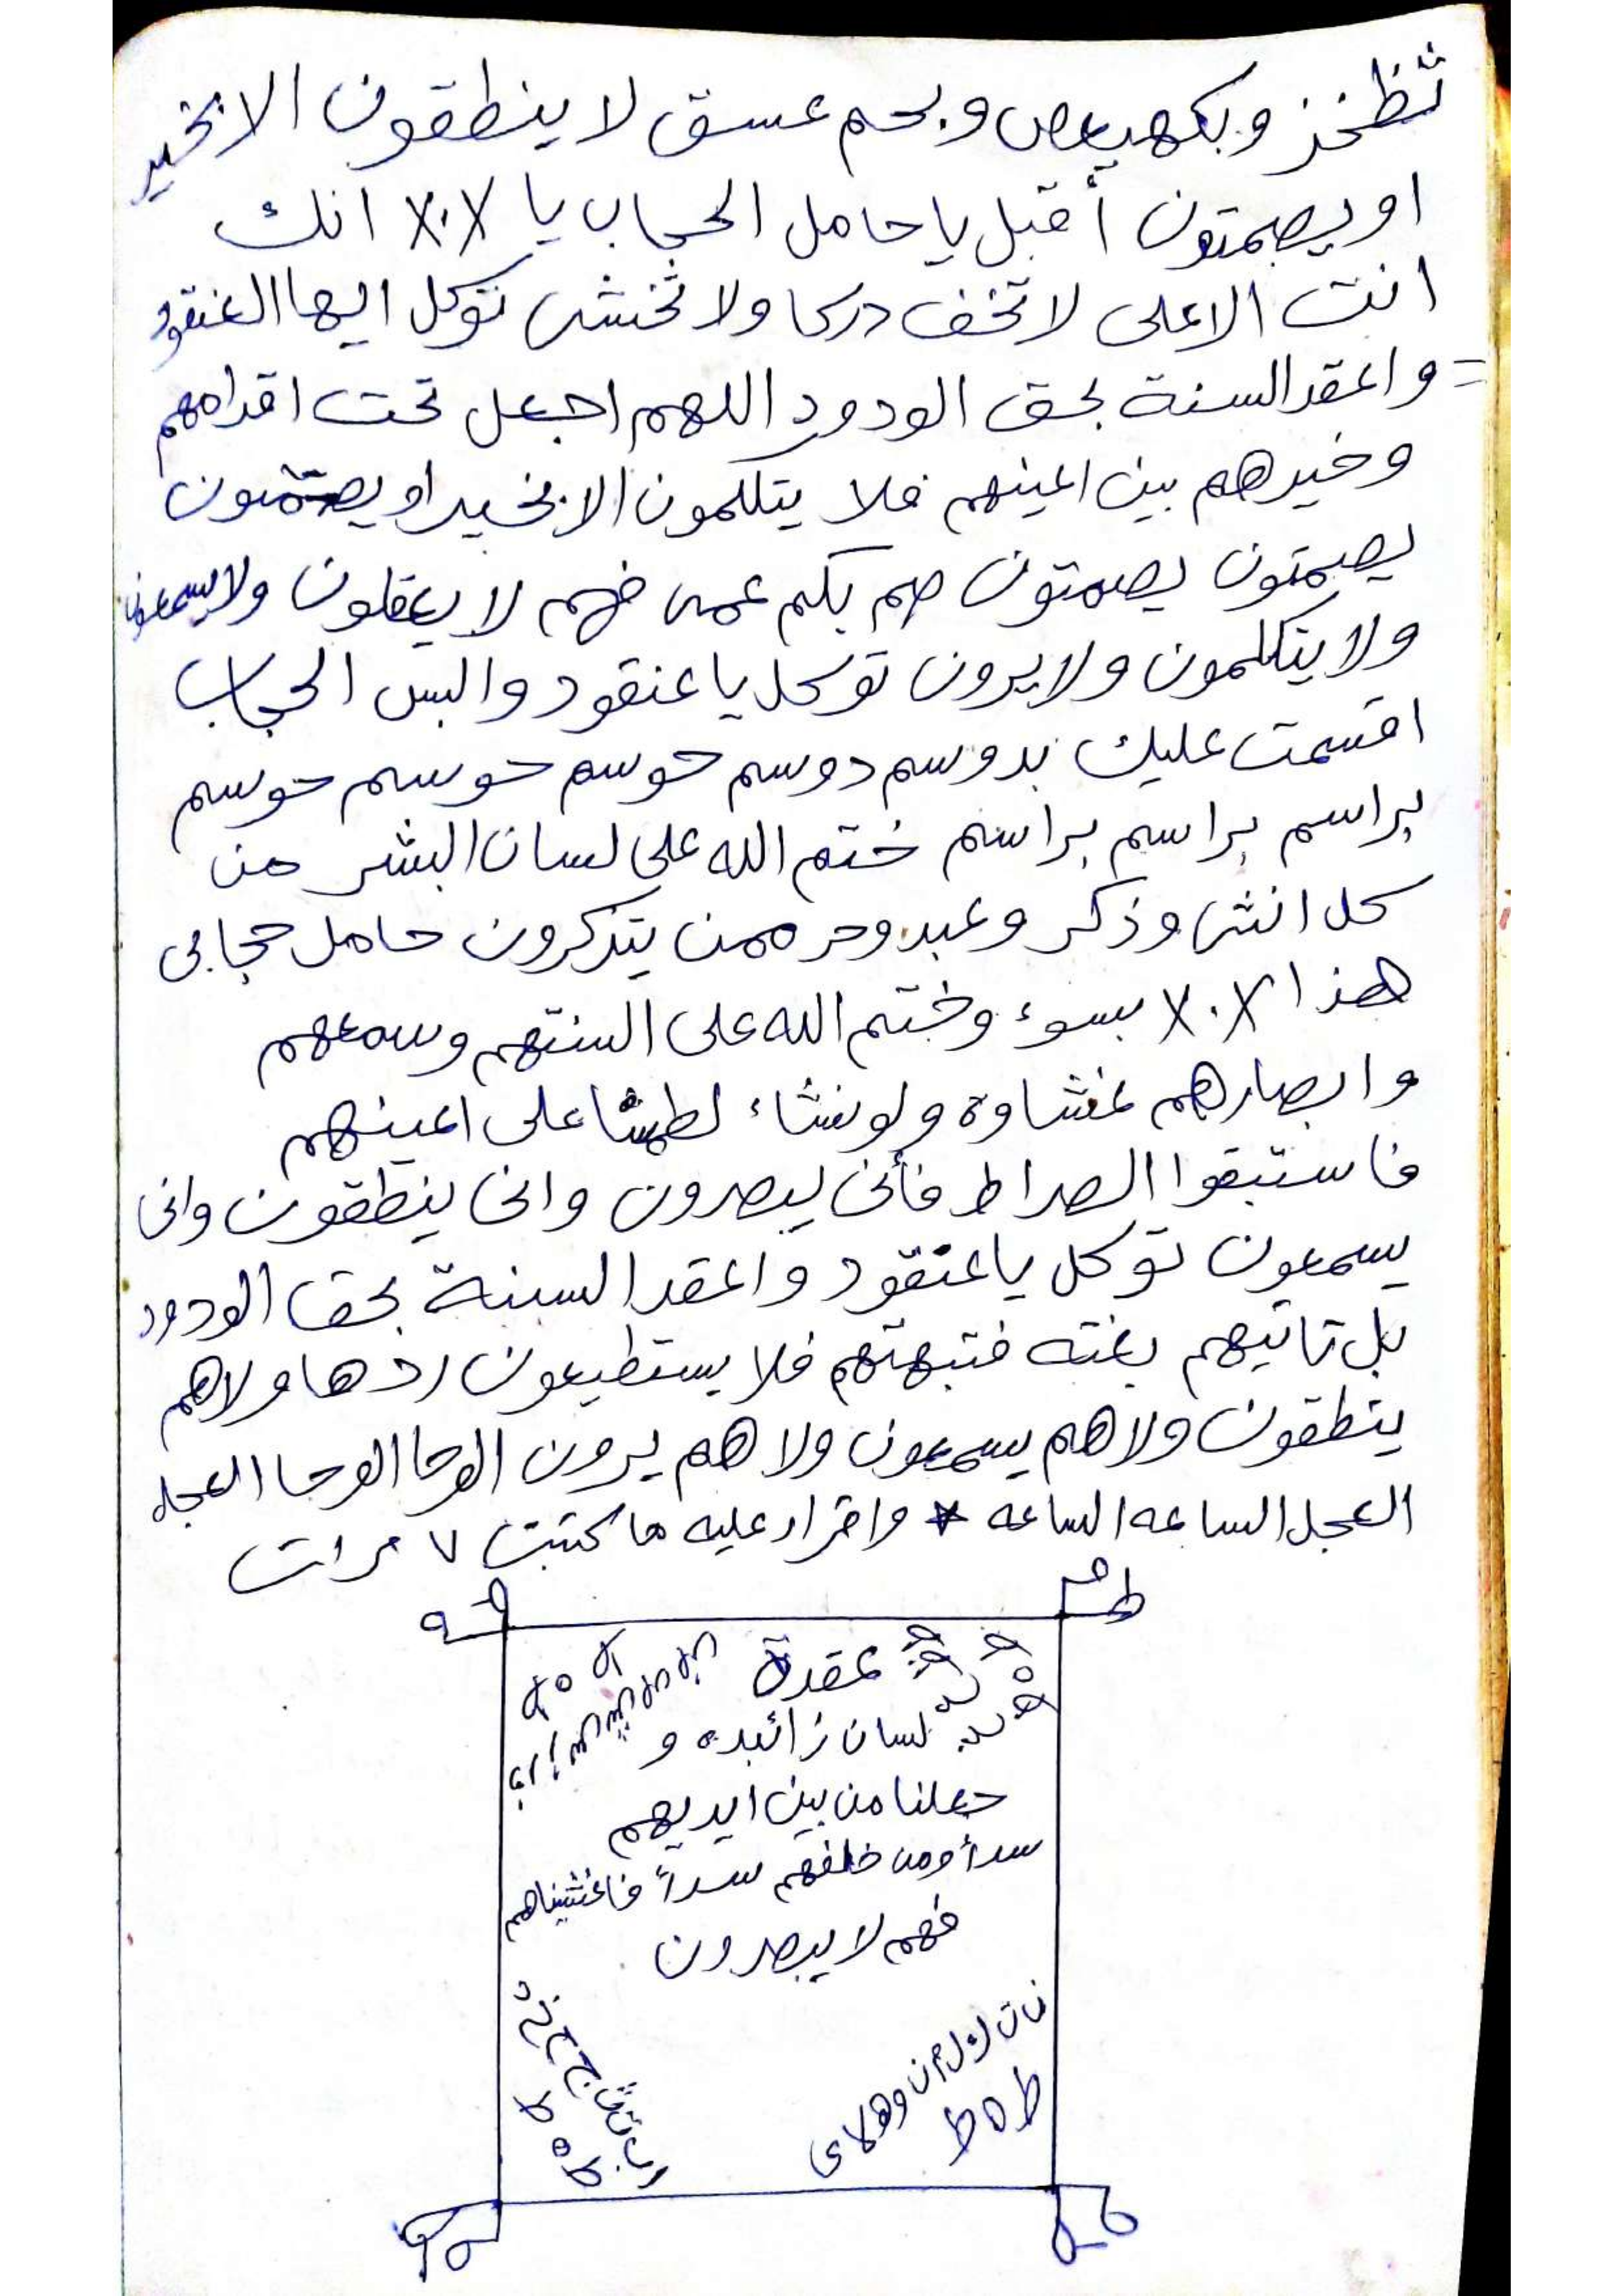 ثظخز وبكهيعص وبحم عسق لا ينطقون الا بخير
او يصمتون أقبل يا حامل الحجاب يا X.X انك
انت الاعلى لا تخف دركا ولا تخشى توكل ايها العنقود
= واعقد السنة بحق الودود اللهم اجعل تحت اقدامهم
وخيرهم بين اعينهم فلا يتكلمون الا بخير او يصتمون
يصمتون يصمتون صم بكم عمى فهم لا يعقلون ولا يسمعون
ولا يتكلمون ولا يرون توكل يا عنقود والبس الحجاب
اقسمت عليك بدوسم دوسم حوسم حوسم حوسم
براسم براسم براسم ختم الله على لسان البشر من
كل انثى وذكر وعبد وحر ممن يتذكرون حامل حجابى
هذا X.X بسوء وختم الله على السنتهم وسمعهم
وابصارهم غشاوة ولو نشاء لطمسنا على اعينهم
فاستبقوا الصراط فأنى يبصرون وانى ينطقون وانى
يسمعون توكل يا عنقود واعقد السنة بحق الودود
بل تاتيهم بغته فتبهتهم فلا يستطيعون ردها ولا هم
ينطقون ولا هم يسمعون ولا هم يرون الوحا الوحا العجل
العجل الساعه الساعه * واقراء عليه ما كتبت ٧ مرات
عقدة
لسان زائيده و
جعلنا من بين ايديهم
سدأ ومن خلفهم سدأ فاغشيناهم
فهم لا يبصرون
ط ه ط